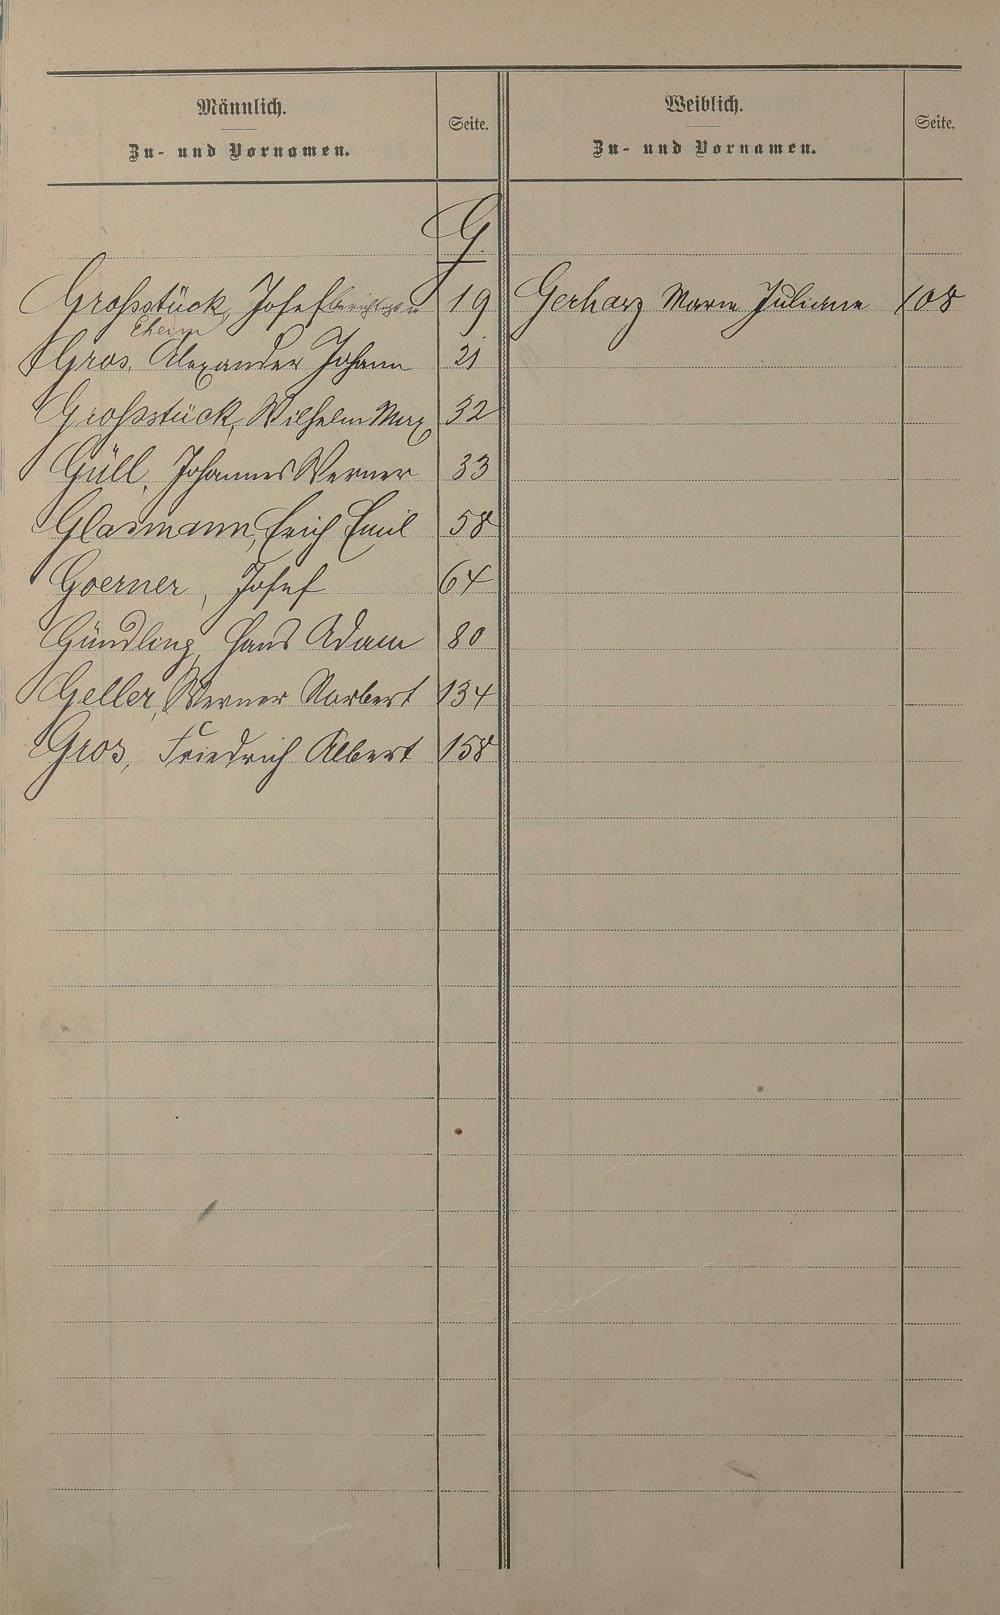 Männlich.
Zu- und Vornamen.
Seite.
Weiblich.
Zu- und Vornamen.
Seite.
G
Großstück, Josef 19
Gerharz Marie Juliane 108
Gros, Alexander Johann 21
Großstück, Wilhelm Max 32
Güll, Johannes Werner 33
Glasmann, Erich Emil 58
Goerner, Josef 64
Gündling, Hans Adam 80
Geller, Werner Norbert 134
Gros, Friedrich Albert 158